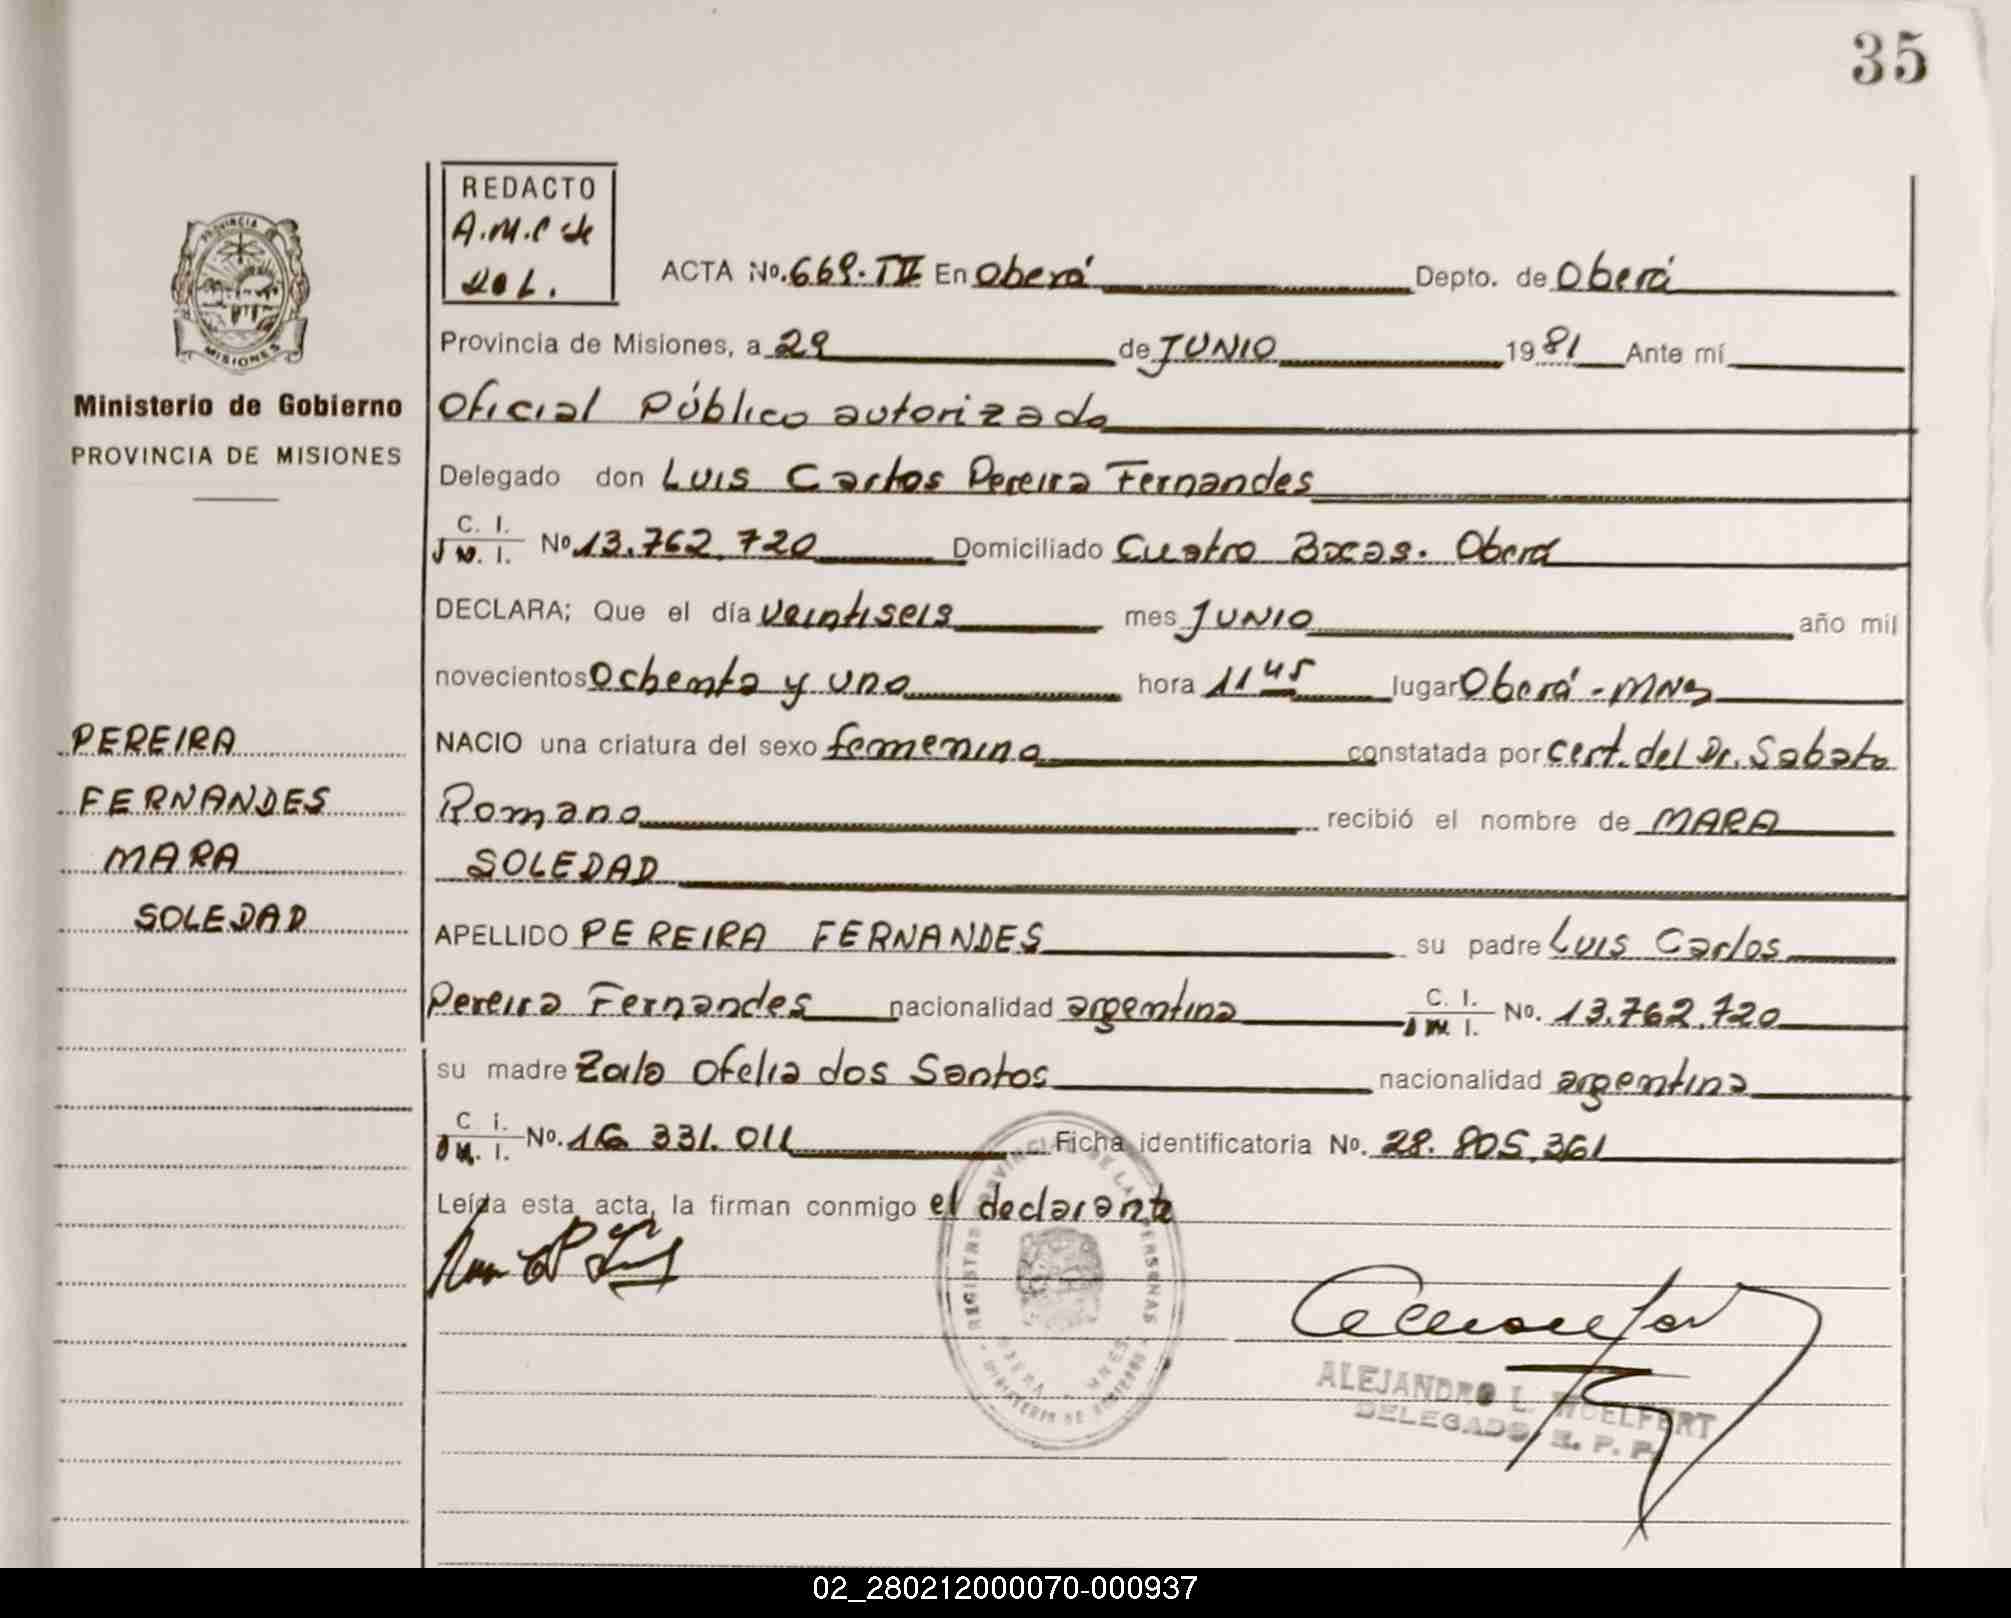 35
REDACTO
A.M.C de
ACTA No. 669. En Oberá Depto. de Oberá
PROVINCIA
MISIONES
Provincia de Misiones, a 29 de JUNIO 1981 Ante mí
Ministerio de Gobierno
PROVINCIA DE MISIONES
Oficial Público autorizado
Delegado don Luis Carlos Pereira Fernandes
C. I.
No 13.762.720 Domiciliado Cuatro Bocas. Oberá
DECLARA; Que el día veintiseis mes JUNIO año mil
novecientos Ochenta y uno hora 11 45 lugar Oberá - MNes
NACIO una criatura del sexo femenino constatada por cert. del Dr. Sabato
Romano recibió el nombre de MARA
SOLEDAD
PEREIRA
FERNANDES
MARA
SOLEDAD
APELLIDO PEREIRA FERNANDES su padre Luis Carlos
Pereira Fernandes nacionalidad argentina C. I. No. 13.762.720
su madre Ofelia dos Santos nacionalidad argentina
C. I.
No. 16 331.011 Ficha identificatoria No. 28.805.361
Leída esta acta, la firman conmigo el declarante
REGISTRO PROVINCIAL DE LAS PERSONAS
MINISTERIO DE GOBIERNO
OBERA - MNES
ALEJANDRO L. WOELFERT
DELEGADO, R. P. P.
02_280212000070-000937